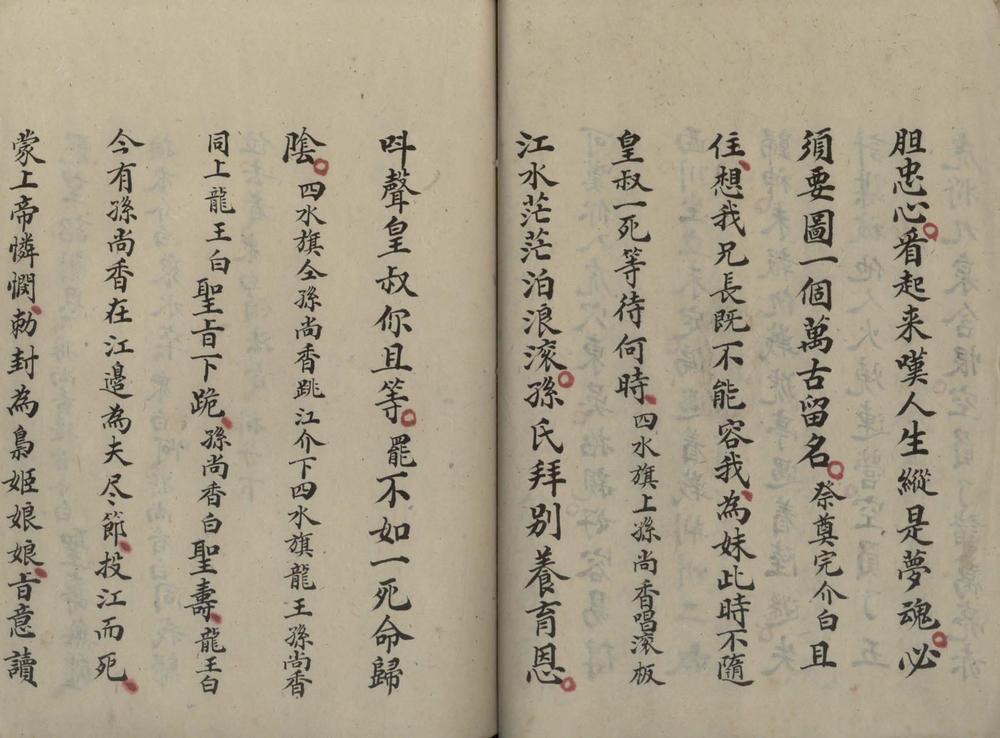 胆忠心看起来嘆人生縱是夢魂必
須要圖一個萬古留名祭奠完介白且
住想我兄長既不能容我為妹此時不隨
皇叔一死等待何時四水旗上孫尚香唱滚板
江水茫茫泊浪滚孫氏拜别養育恩
呌聲皇叔你且等罷不如一死命歸
隂四水旗仝孫尚香跳江介下四水旗龍王孫尚香
同上龍王白聖旨下跪孫尚香白聖壽龍王白
今有孫尚香在江邊為夫尽節投江而死
蒙上帝憐憫勅封為梟姬娘娘旨意讀